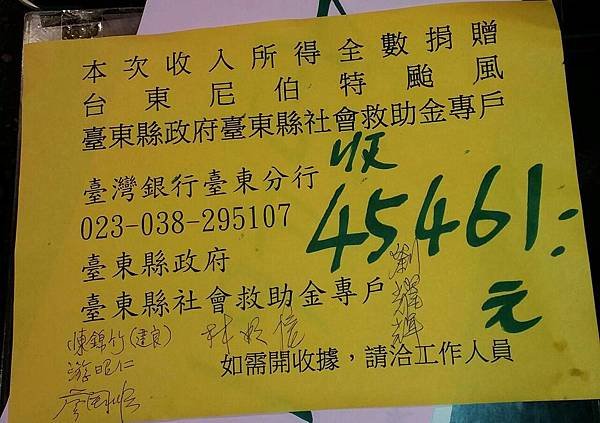 本次收入所得全數捐贈
台東尼伯特颱風
臺東縣政府臺東縣社會救助金專戶
收
45461元
臺灣銀行臺東分行
023-038-295107
臺東縣政府
臺東縣社會救助金專戶
陳錦竹(建良)
游昭仁
如需開收據，請洽工作人員